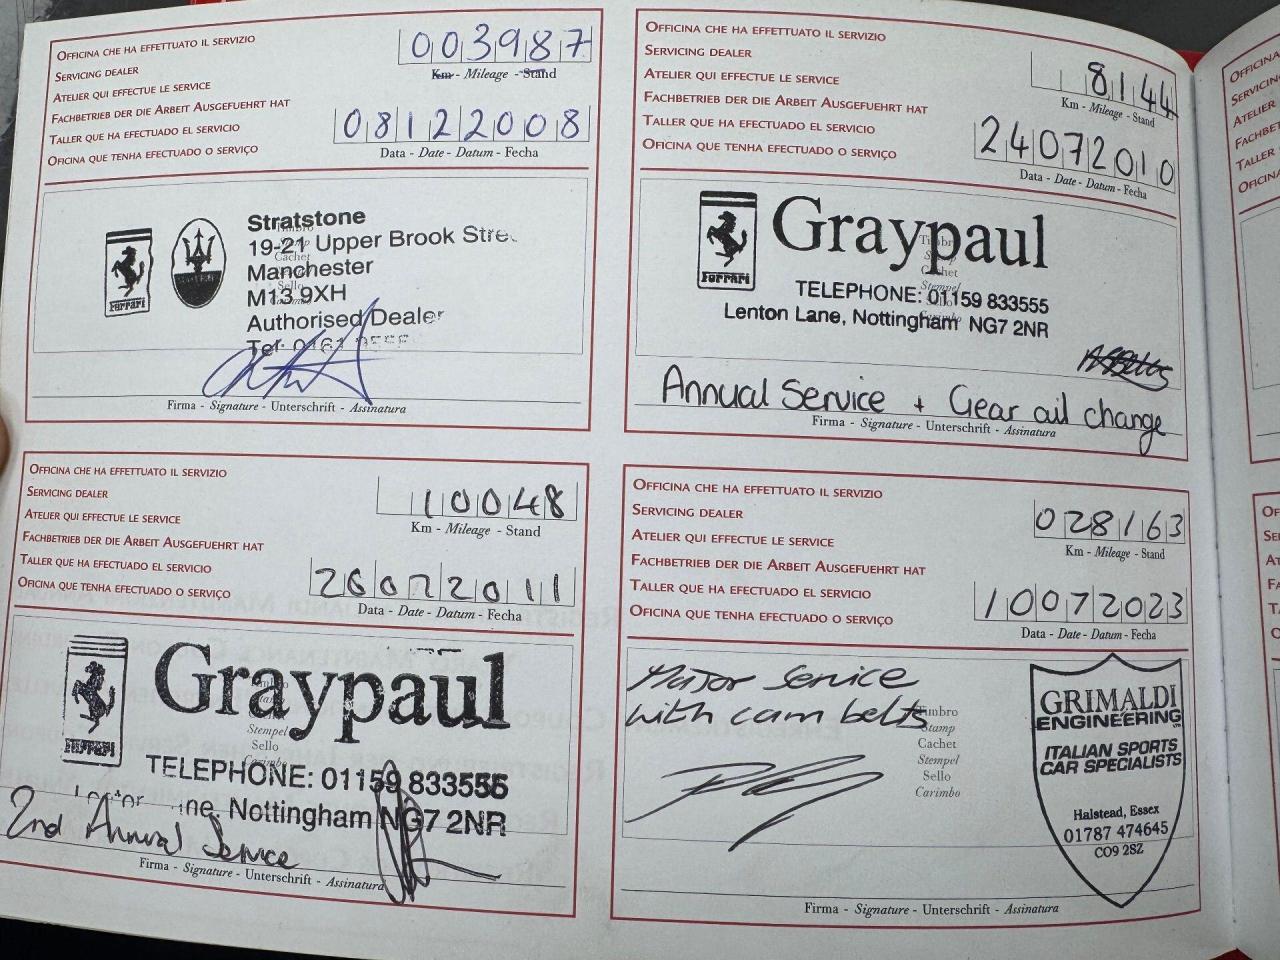 OFFICINA CHE HA EFFETTUATO IL SERVIZIO
SERVICING DEALER
ATELIER QUI EFFECTUE LE SERVICE
FACHBETRIEB DER DIE ARBEIT AUSGEFUEHRT HAT
TALLER QUE HA EFECTUADO EL SERVICIO
OFICINA QUE TENHA EFECTUADO O SERVIÇO
003987
Km - Mileage - Stand
08122008
Data - Date - Datum - Fecha
Ferrari
Stratstone
19-21 Upper Brook Stre
Manchester
M13 9XH
Authorised Dealer
Tel: 0161
Timbro
Stamp
Cachet
Stempel
Sello
Carimbo
Firma - Signature - Unterschrift - Assinatura
OFFICINA CHE HA EFFETTUATO IL SERVIZIO
SERVICING DEALER
ATELIER QUI EFFECTUE LE SERVICE
FACHBETRIEB DER DIE ARBEIT AUSGEFUEHRT HAT
TALLER QUE HA EFECTUADO EL SERVICIO
OFICINA QUE TENHA EFECTUADO O SERVIÇO
8144
Km - Mileage - Stand
24072010
Data - Date - Datum - Fecha
Ferrari
Graypaul
TELEPHONE: 01159 833555
Lenton Lane, Nottingham NG7 2NR
Timbro
Stamp
Cachet
Stempel
Sello
Carimbo
Annual Service + Gear oil change
Firma - Signature - Unterschrift - Assinatura
OFFICINA CHE HA EFFETTUATO IL SERVIZIO
SERVICING DEALER
ATELIER QUI EFFECTUE LE SERVICE
FACHBETRIEB DER DIE ARBEIT AUSGEFUEHRT HAT
TALLER QUE HA EFECTUADO EL SERVICIO
OFICINA QUE TENHA EFECTUADO O SERVIÇO
10048
Km - Mileage - Stand
26072011
Data - Date - Datum - Fecha
Ferrari
Graypaul
TELEPHONE: 01159 833555
Nottingham NG7 2NR
Stamp
Cachet
Stempel
Sello
Carimbo
2nd Annual Service
Firma - Signature - Unterschrift - Assinatura
OFFICINA CHE HA EFFETTUATO IL SERVIZIO
SERVICING DEALER
ATELIER QUI EFFECTUE LE SERVICE
FACHBETRIEB DER DIE ARBEIT AUSGEFUEHRT HAT
TALLER QUE HA EFECTUADO EL SERVICIO
OFICINA QUE TENHA EFECTUADO O SERVIÇO
028163
Km - Mileage - Stand
10072023
Data - Date - Datum - Fecha
Major Service
with cam belts
Timbro
Stamp
Cachet
Stempel
Sello
Carimbo
GRIMALDI
ENGINEERING
ITALIAN SPORTS
CAR SPECIALISTS
Halstead, Essex
01787 474645
CO9 2SZ
Firma - Signature - Unterschrift - Assinatura